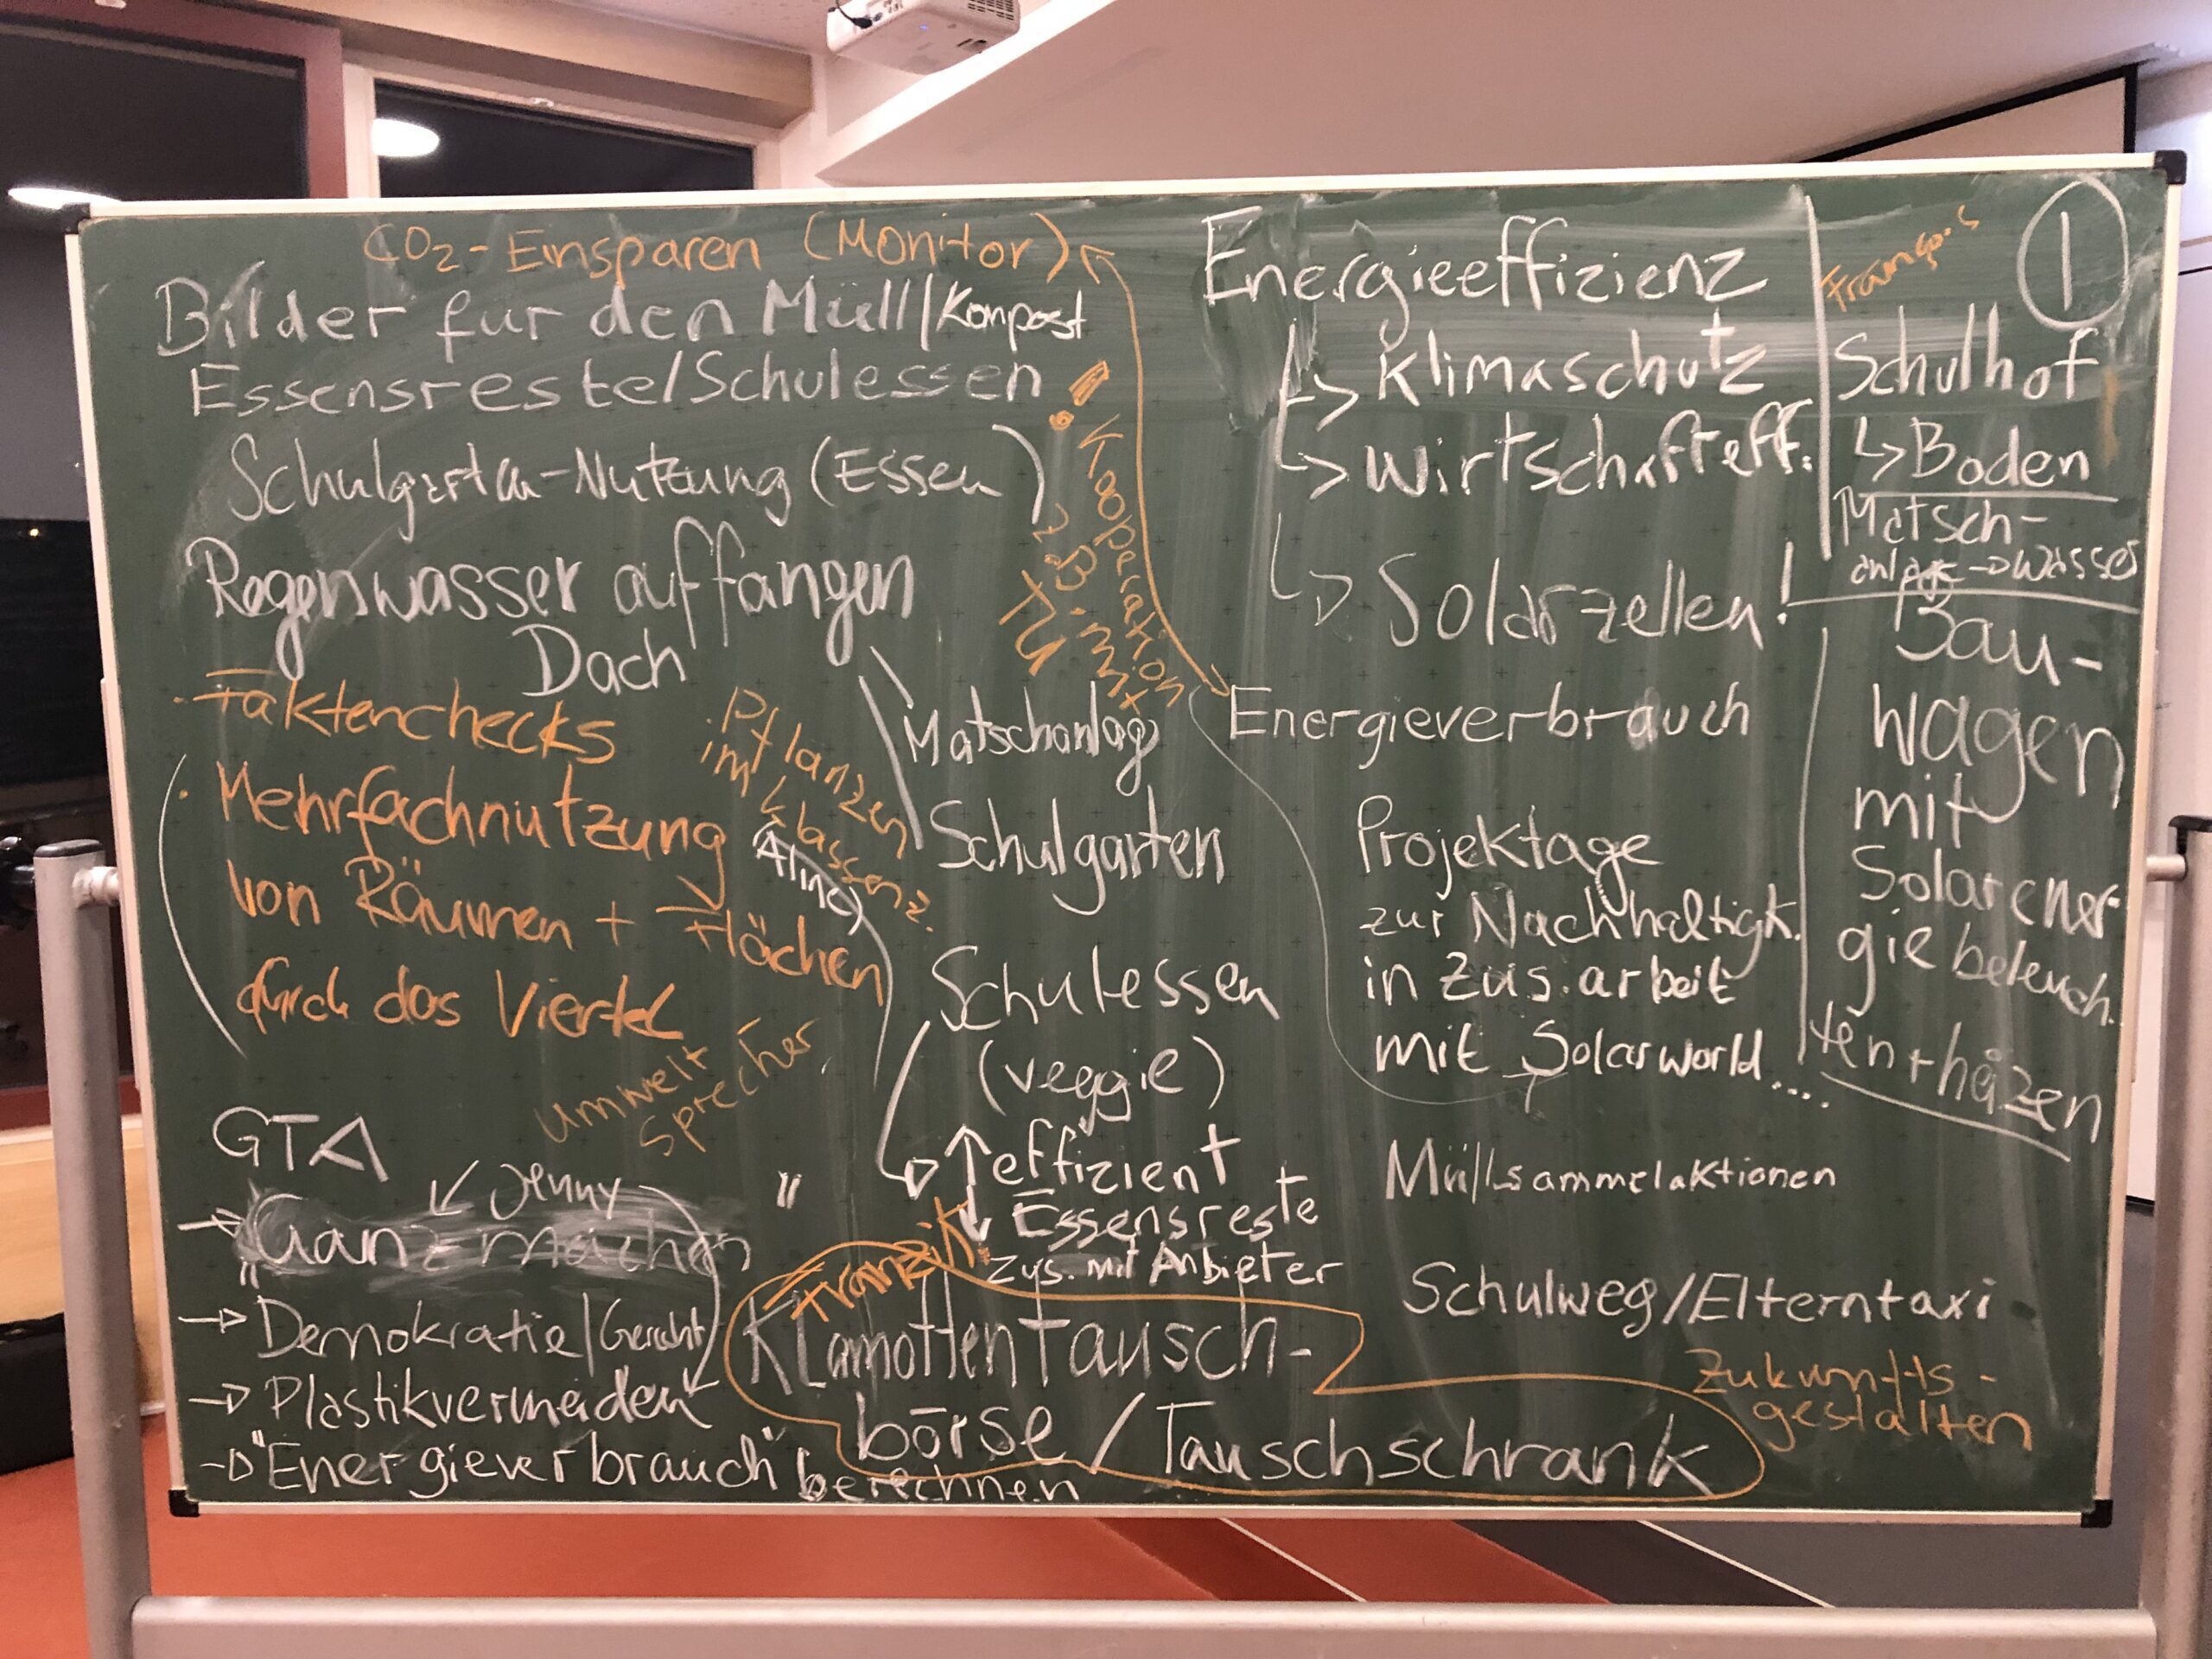 CO₂-Einsparen (Monitor)
Bilder für den Müll/Kompost
Essensreste/Schulessen
Schulgarten-Nutzung (Essen)
Regenwasser auffangen
Dach
Matschanlag
Schulgarten
• Kooperation
z.B. mit
TU
• Faktenchecks
• Mehrfachnutzung
von Räumen + Flächen
durch das Viertel
• Pflanzen
im Klassenz.
Alina
Umwelt
sprecher
Schulessen
(veggie)
effizient
Essensreste
zus. mit Anbieter
GTA
Jenny
"
→ Ganz machen
"
→ Demokratie/Gericht
→ Plastikvermeiden
→ "Energieverbrauch" berechnen
Franzik
Klamottentausch-
börse / Tauschschrank
Energieeffizienz
↳ Klimaschutz
↳ Wirtschafteff.
↳ Solarzellen!
Energieverbrauch
Projektage
zur Nachhaltigk.
in Zus.arbeit
mit Solarworld...
Müllsammelaktionen
Schulweg/Elterntaxi
Zukunfts-
gestalten
1
Schulhof
↳ Boden
Matsch-
anlage → Wasser
Bau-
wagen
mit
Solarener-
gie beleuch.
ten + häzen